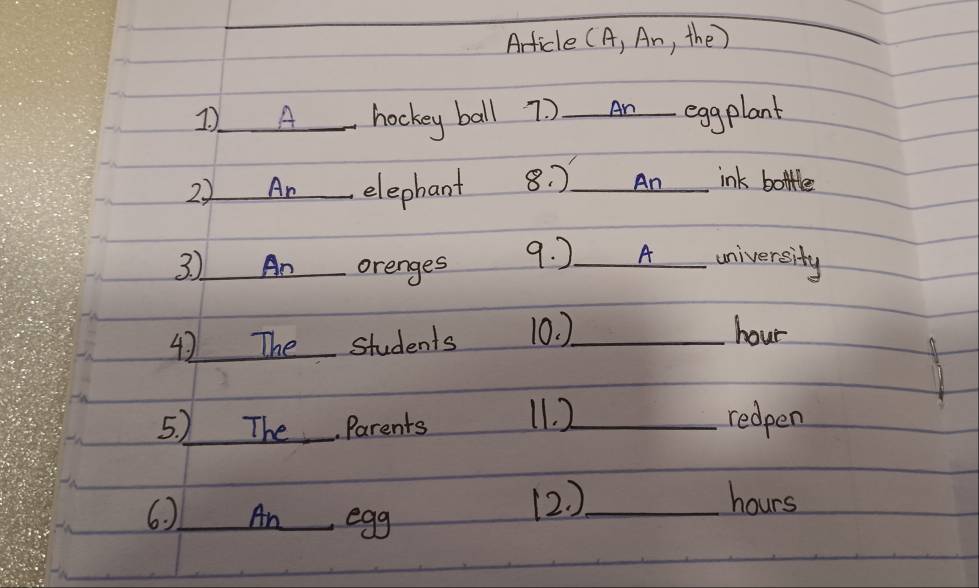 Article (A, An, the)
1.) A hockey ball 7.) An eggplant
2) An elephant 8.) An ink bottle
3.) An orenges 9.) A university
4.) The students 10.) hour
5.) The Parents 11.) redpen
6.) An egg 12.) hours